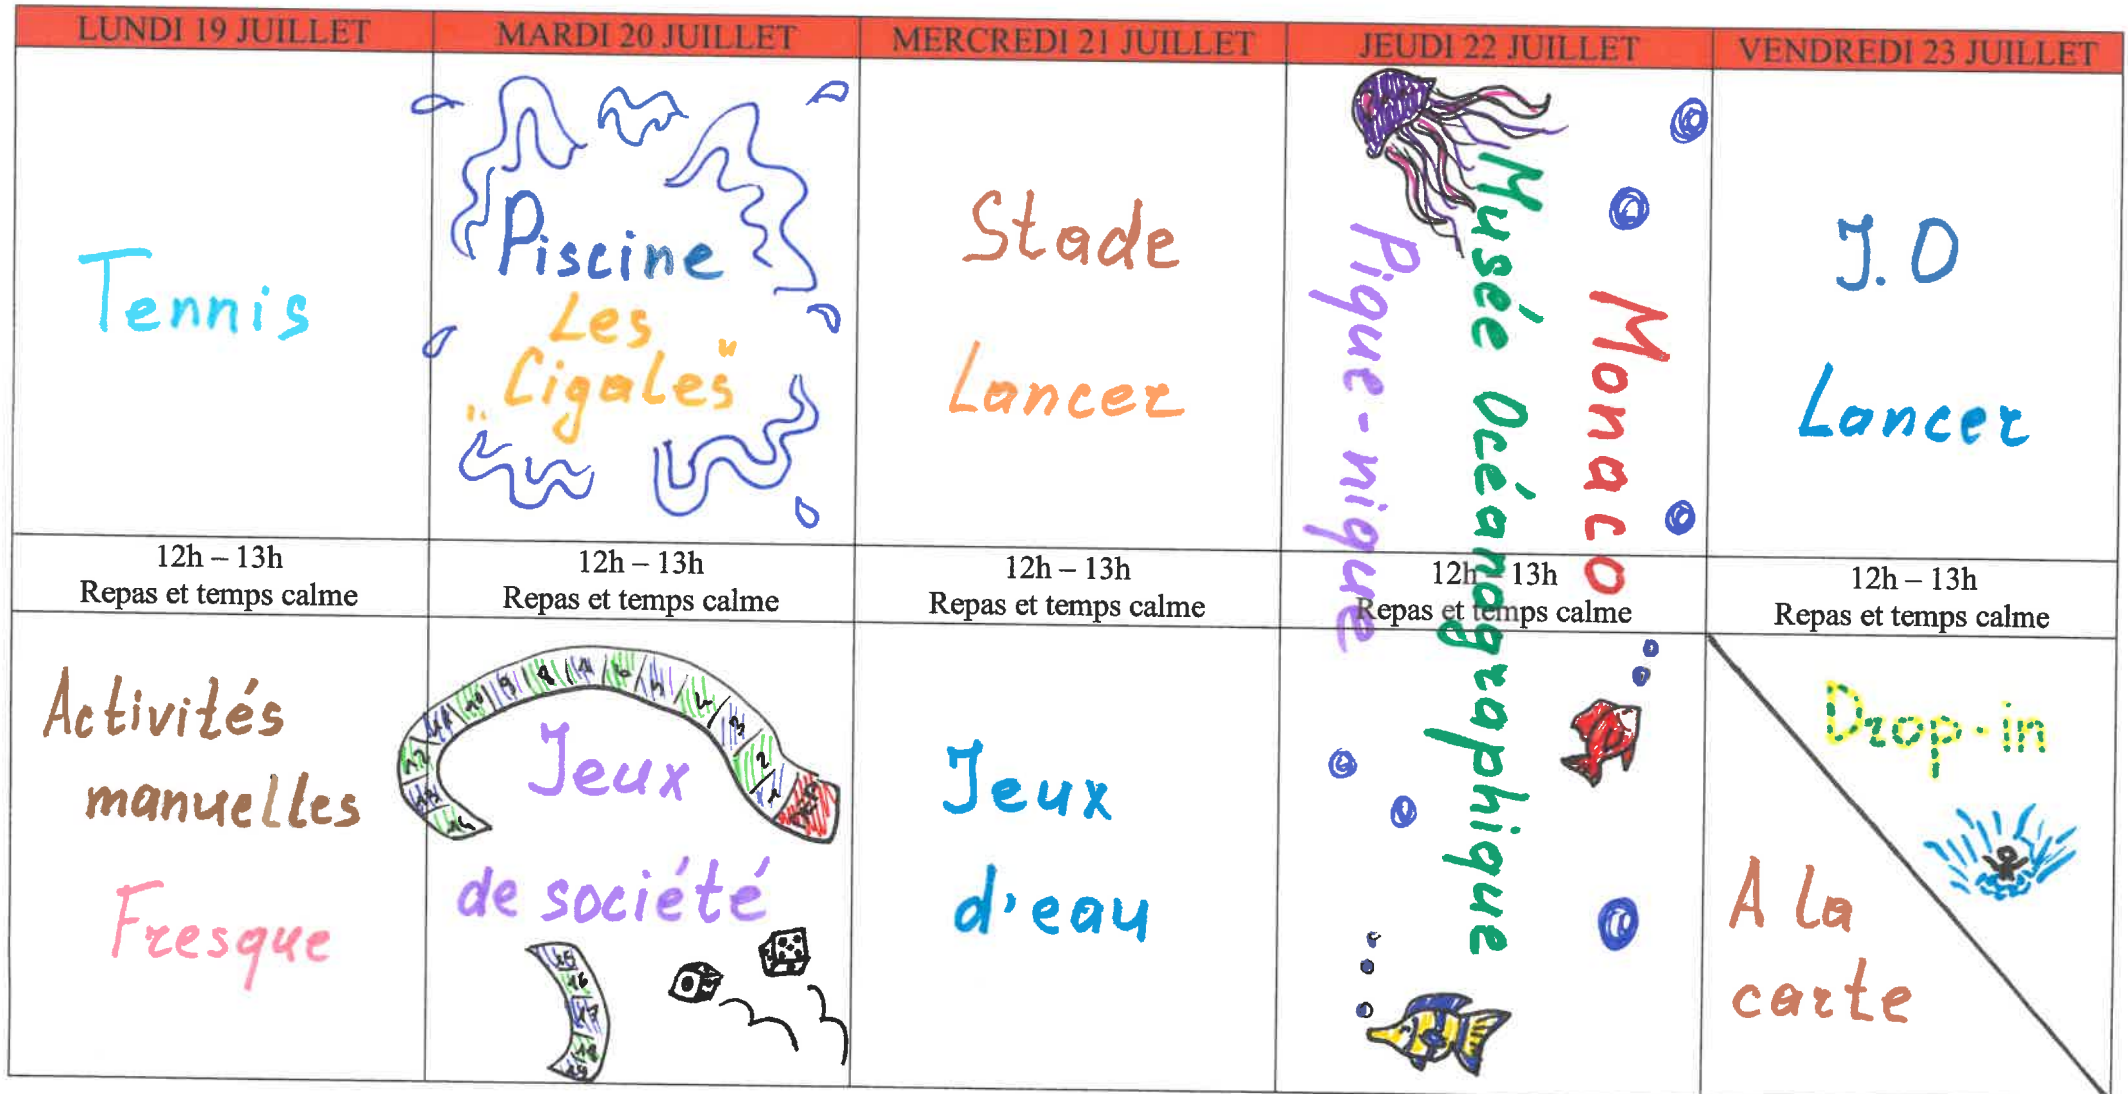 LUNDI 19 JUILLET
MARDI 20 JUILLET
MERCREDI 21 JUILLET
JEUDI 22 JUILLET
VENDREDI 23 JUILLET
Tennis
Piscine
Les
„Cigales"
Stade
Lancer
Monaco
Musée Océanographique
Pique-nique
J.O
Lancer
12h – 13h
Repas et temps calme
12h – 13h
Repas et temps calme
12h – 13h
Repas et temps calme
12h – 13h
Repas et temps calme
12h – 13h
Repas et temps calme
Activités
manuelles
Fresque
Jeux
de société
1 2 3 4 5 6 7 8 9 10 11 12 13 14
15
16
17
18
19
Jeux
d'eau
Drop-in
A la
carte